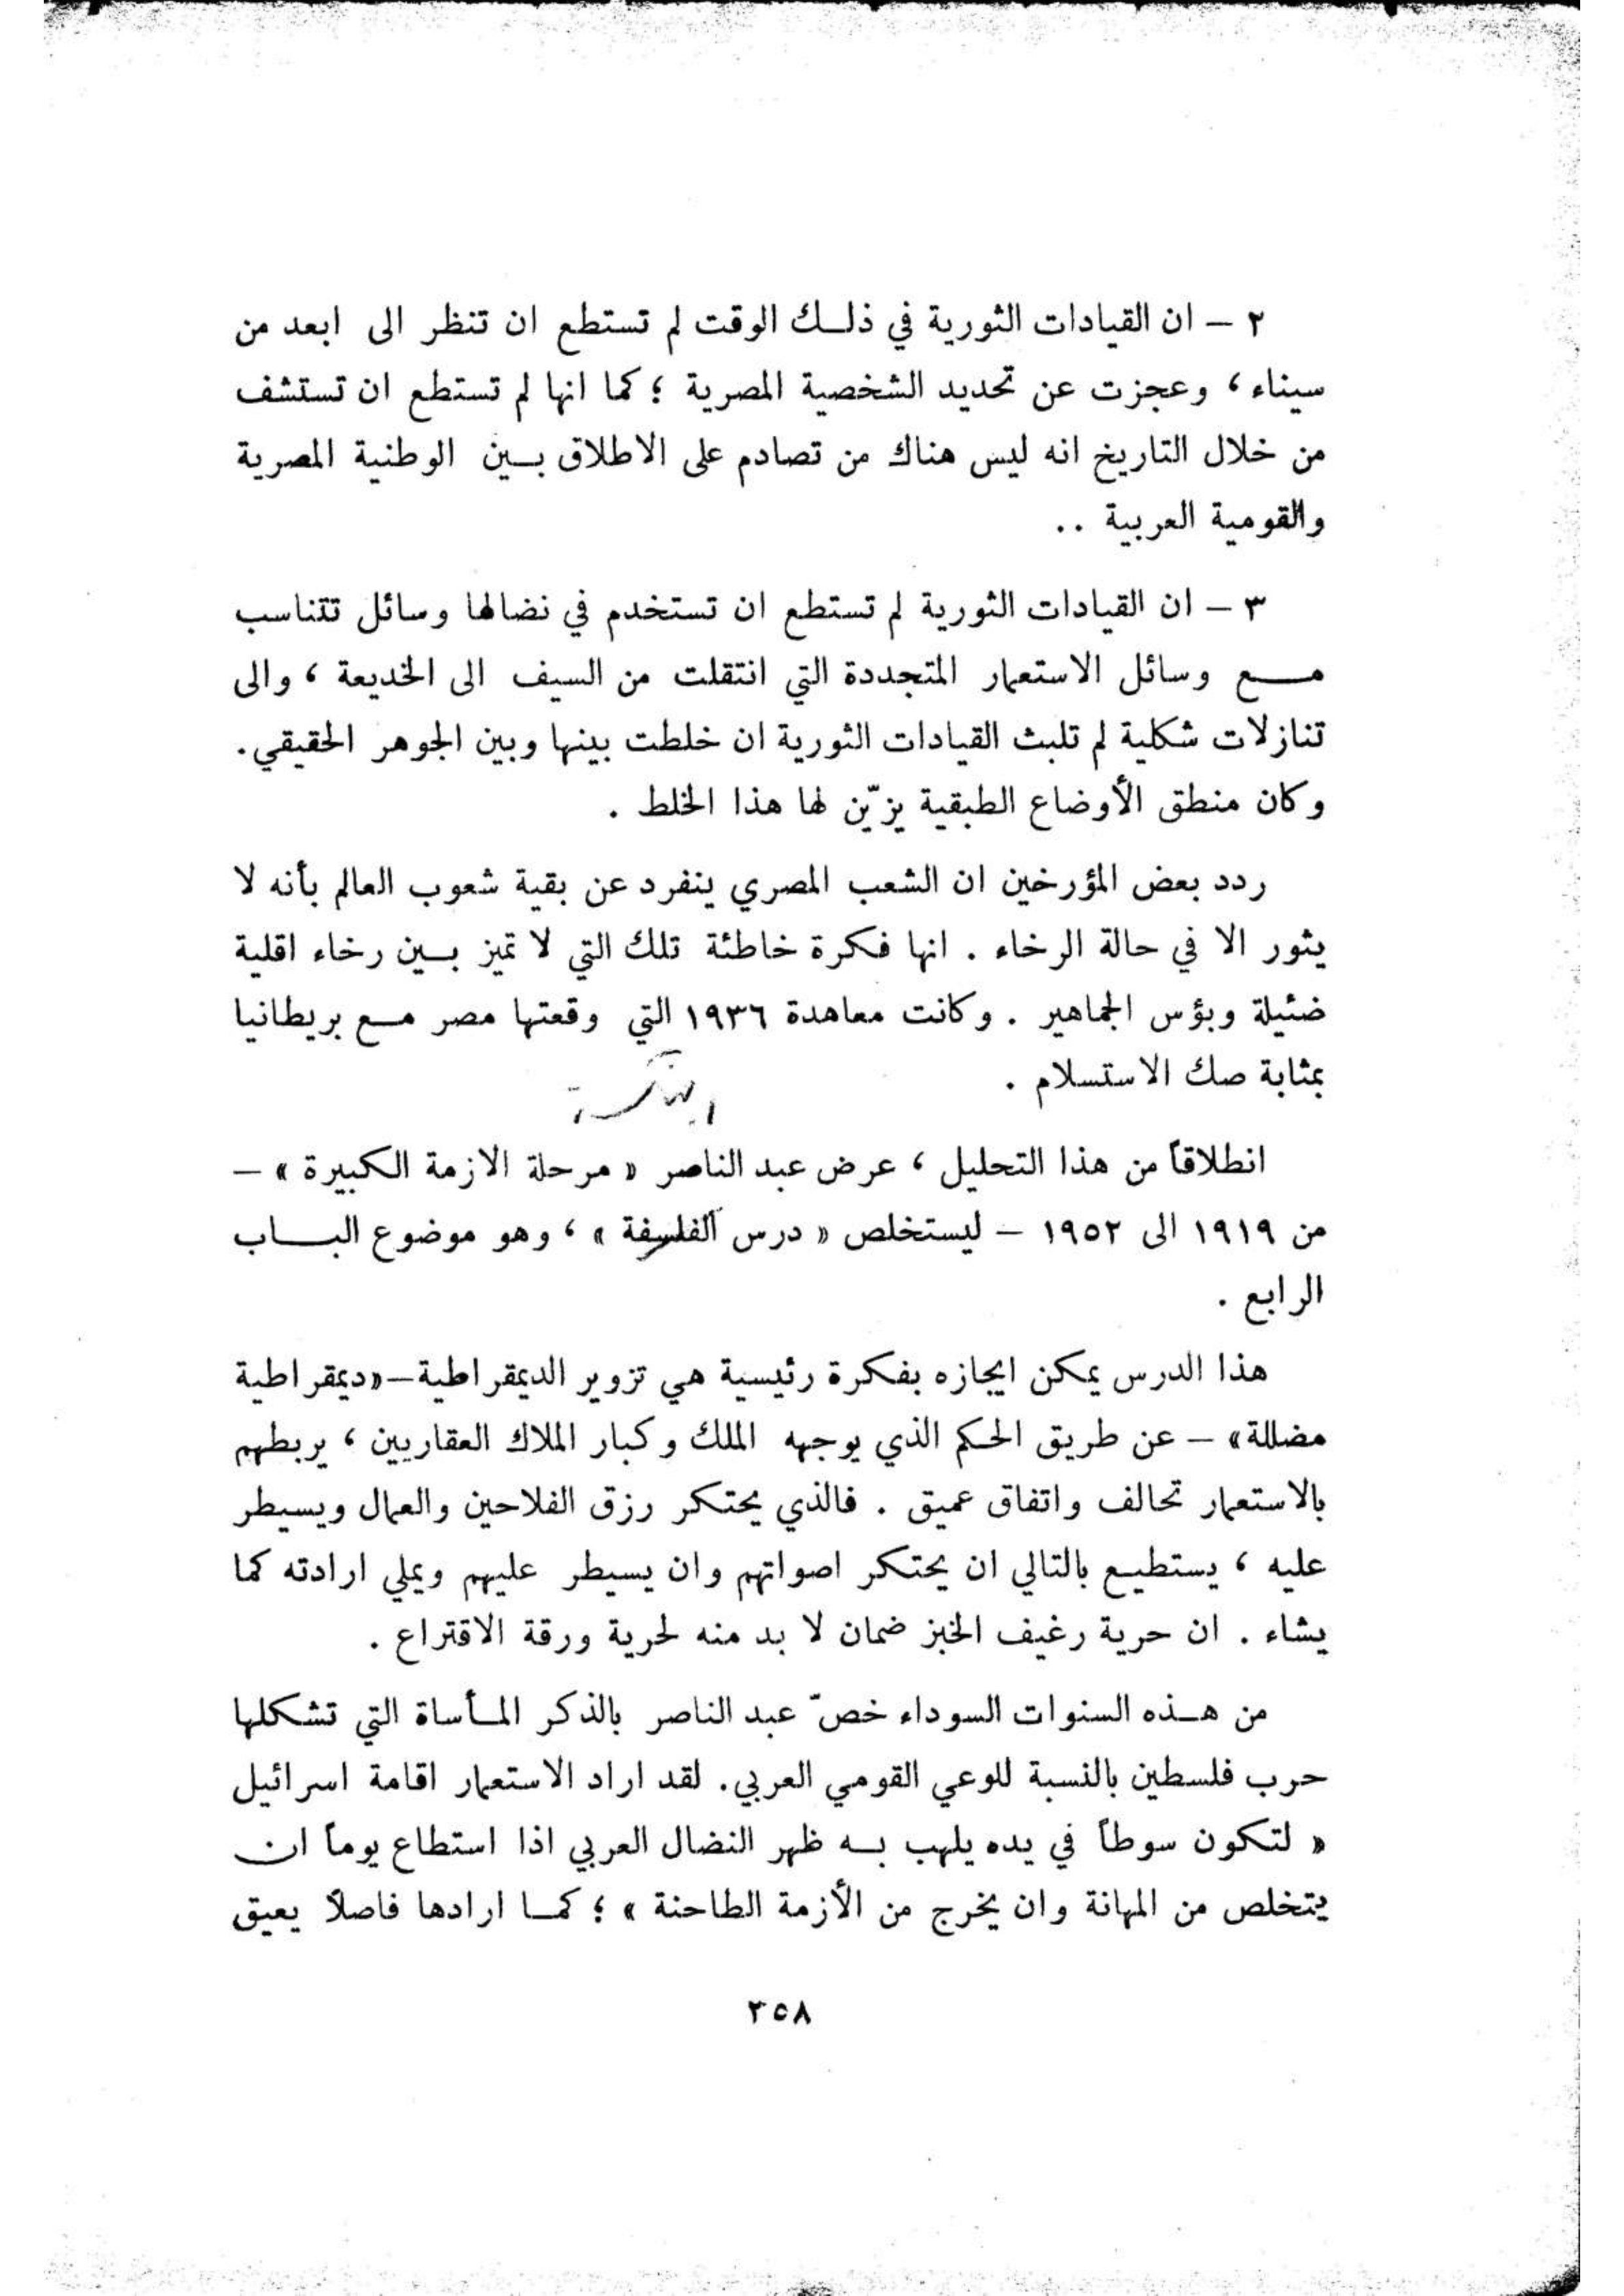 ٢ – ان القيادات الثورية في ذلك الوقت لم تستطع ان تنظر الى ابعد من
سيناء ، وعجزت عن تحديد الشخصية المصرية ؛ كما انها لم تستطع ان تستشف
من خلال التاريخ انه ليس هناك من تصادم على الاطلاق بين الوطنية المصرية
والقومية العربية ..
٣ – ان القيادات الثورية لم تستطع ان تستخدم في نضالها وسائل تتناسب
مع وسائل الاستعمار المتجددة التي انتقلت من السيف الى الخديعة ، والى
تنازلات شكلية لم تلبث القيادات الثورية ان خلطت بينها وبين الجوهر الحقيقي.
وكان منطق الأوضاع الطبقية يزيّن لها هذا الخلط .
ردد بعض المؤرخين ان الشعب المصري ينفرد عن بقية شعوب العالم بأنه لا
يثور الا في حالة الرخاء . انها فكرة خاطئة تلك التي لا تميز بين رخاء اقلية
ضئيلة وبؤس الجماهير . وكانت معاهدة ١٩٣٦ التي وقعتها مصر مع بريطانيا
بمثابة صك الاستسلام .
النكسة
انطلاقاً من هذا التحليل ، عرض عبد الناصر « مرحلة الازمة الكبيرة » –
من ١٩١٩ الى ١٩٥٢ – ليستخلص « درس الفلسفة » ، وهو موضوع الباب
الرابع .
هذا الدرس يمكن ايجازه بفكرة رئيسية هي تزوير الديمقراطية–«ديمقراطية
مضللة» – عن طريق الحكم الذي يوجهه الملك وكبار الملاك العقاريين ، يربطهم
بالاستعمار تحالف واتفاق عميق . فالذي يحتكر رزق الفلاحين والعمال ويسيطر
عليه ، يستطيع بالتالي ان يحتكر اصواتهم وان يسيطر عليهم ويملي ارادته كما
يشاء . ان حرية رغيف الخبز ضمان لا بد منه لحرية ورقة الاقتراع .
من هذه السنوات السوداء خصّ عبد الناصر بالذكر المأساة التي تشكلها
حرب فلسطين بالنسبة للوعي القومي العربي. لقد اراد الاستعمار اقامة اسرائيل
« لتكون سوطاً في يده يلهب به ظهر النضال العربي اذا استطاع يوماً ان
يتخلص من المهانة وان يخرج من الأزمة الطاحنة » ؛ كما ارادها فاصلاً يعيق
٣٥٨